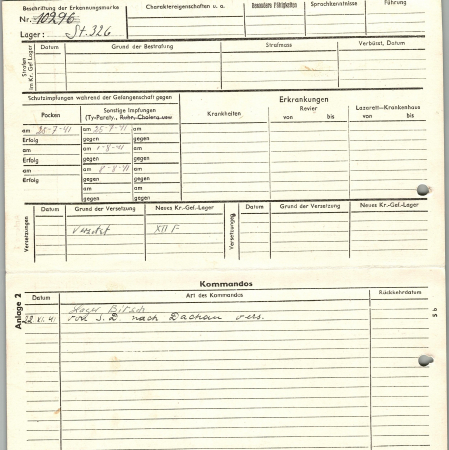 Beschriftung der Erkennungsmarke
Nr. 10296
Lager: St. 326
Charaktereigenschaften u. a.
Besondere Fähigkeiten
Sprachkenntnisse
Führung
Strafen im Kr. Gef Lager
Datum Grund der Bestrafung Strafmass Verbüsst, Datum
Schutzimpfungen während der Gefangenschaft gegen
Erkrankungen
Pocken
Sonstige Impfungen
(Ty-Paraty., Ruhr, Cholera usw
Krankheiten
Revier
von bis
Lazarett-Krankenhaus
von bis
am 25-7-41 am 25-7-41 am
Erfolg gegen gegen
am am 1-8-41 am
Erfolg gegen gegen
am am 8-8-41 am
Erfolg gegen gegen
am am
gegen gegen
Versetzungen
Datum Grund der Versetzung Neues Kr.-Gef.-Lager
Versetzt XII F
Versetzungen
Datum Grund der Versetzung Neues Kr.-Gef.-Lager
Kommandos
Anlage 2
Datum Art des Kommandos Rückkehrdatum
Lager Bitsch
22 XI. 41 von S.D. nach Dachau vers.
5 b